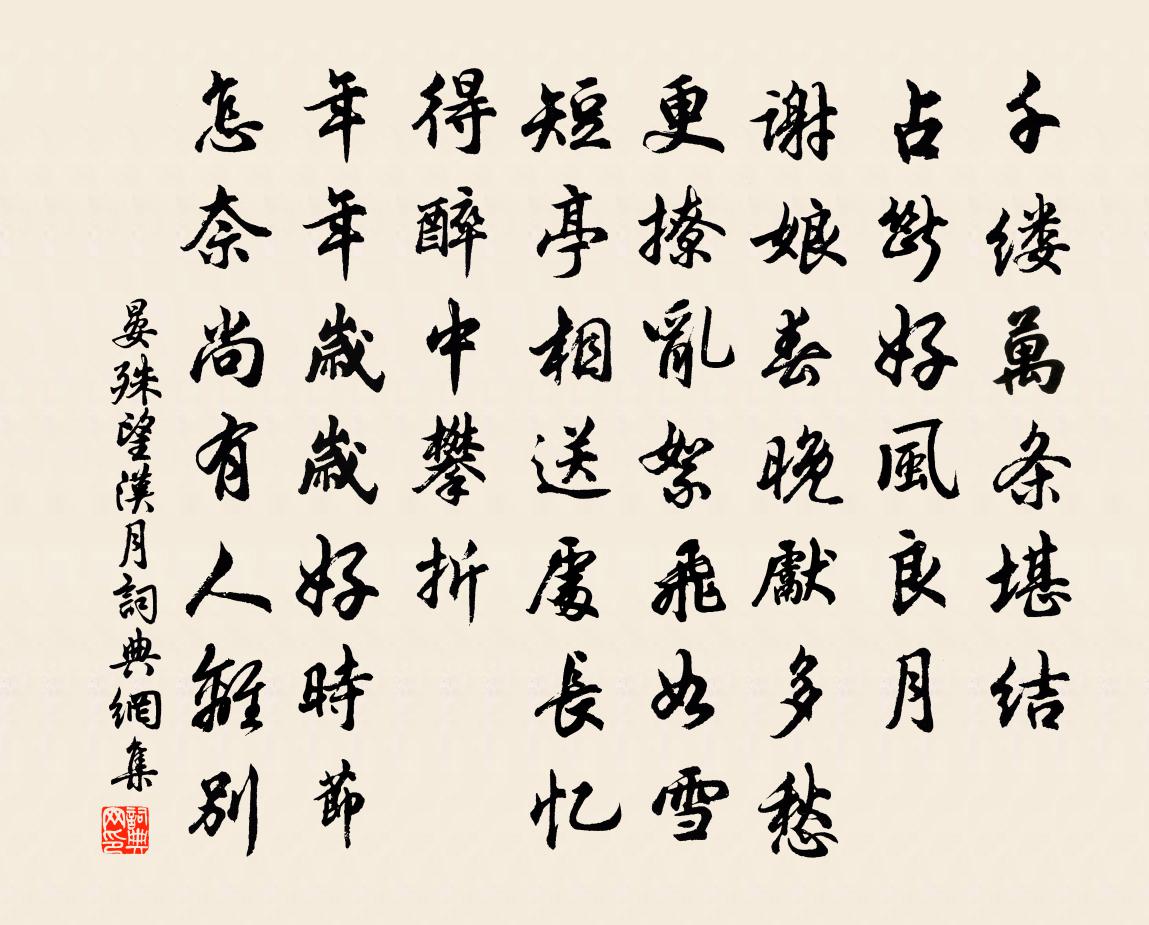 千缕萬条堪结
占斷好風良月
谢娘春晚獻多愁
更撩亂絮飛如雪
短亭相送處長忆
得醉中攀折
年年歲歲好時節
怎奈尚有人離別
晏殊望漢月詞典網集
詞典网印